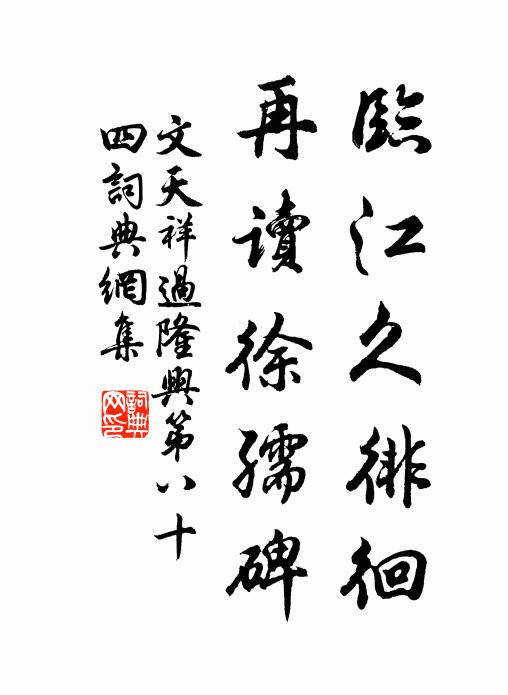 臨江久徘徊
再讀徐孺碑
文天祥過隆興第八十
四詞典網集
詞典网印